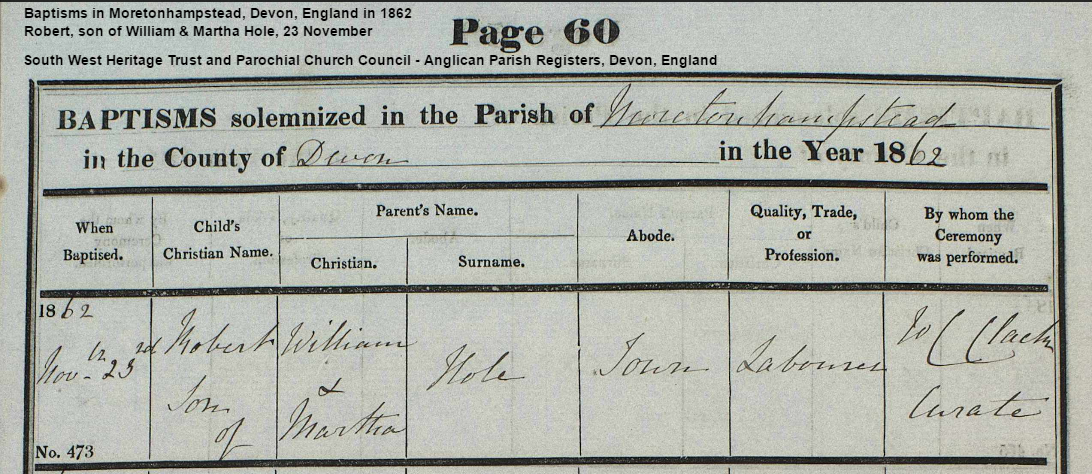 Baptisms in Moretonhampstead, Devon, England in 1862
Robert, son of William & Martha Hole, 23 November
Page 60
South West Heritage Trust and Parochial Church Council - Anglican Parish Registers, Devon, England
BAPTISMS solemnized in the Parish of Moretonhampstead
in the County of Devon in the Year 1862
When Baptised.
Child's Christian Name.
Parent's Name.
Christian.
Surname.
Abode.
Quality, Trade, or Profession.
By whom the Ceremony was performed.
1862
Novbr 23rd
No. 473
Robert
Son
of
William
&
Martha
Hole
Town
Labourer
W C Clack
Curate